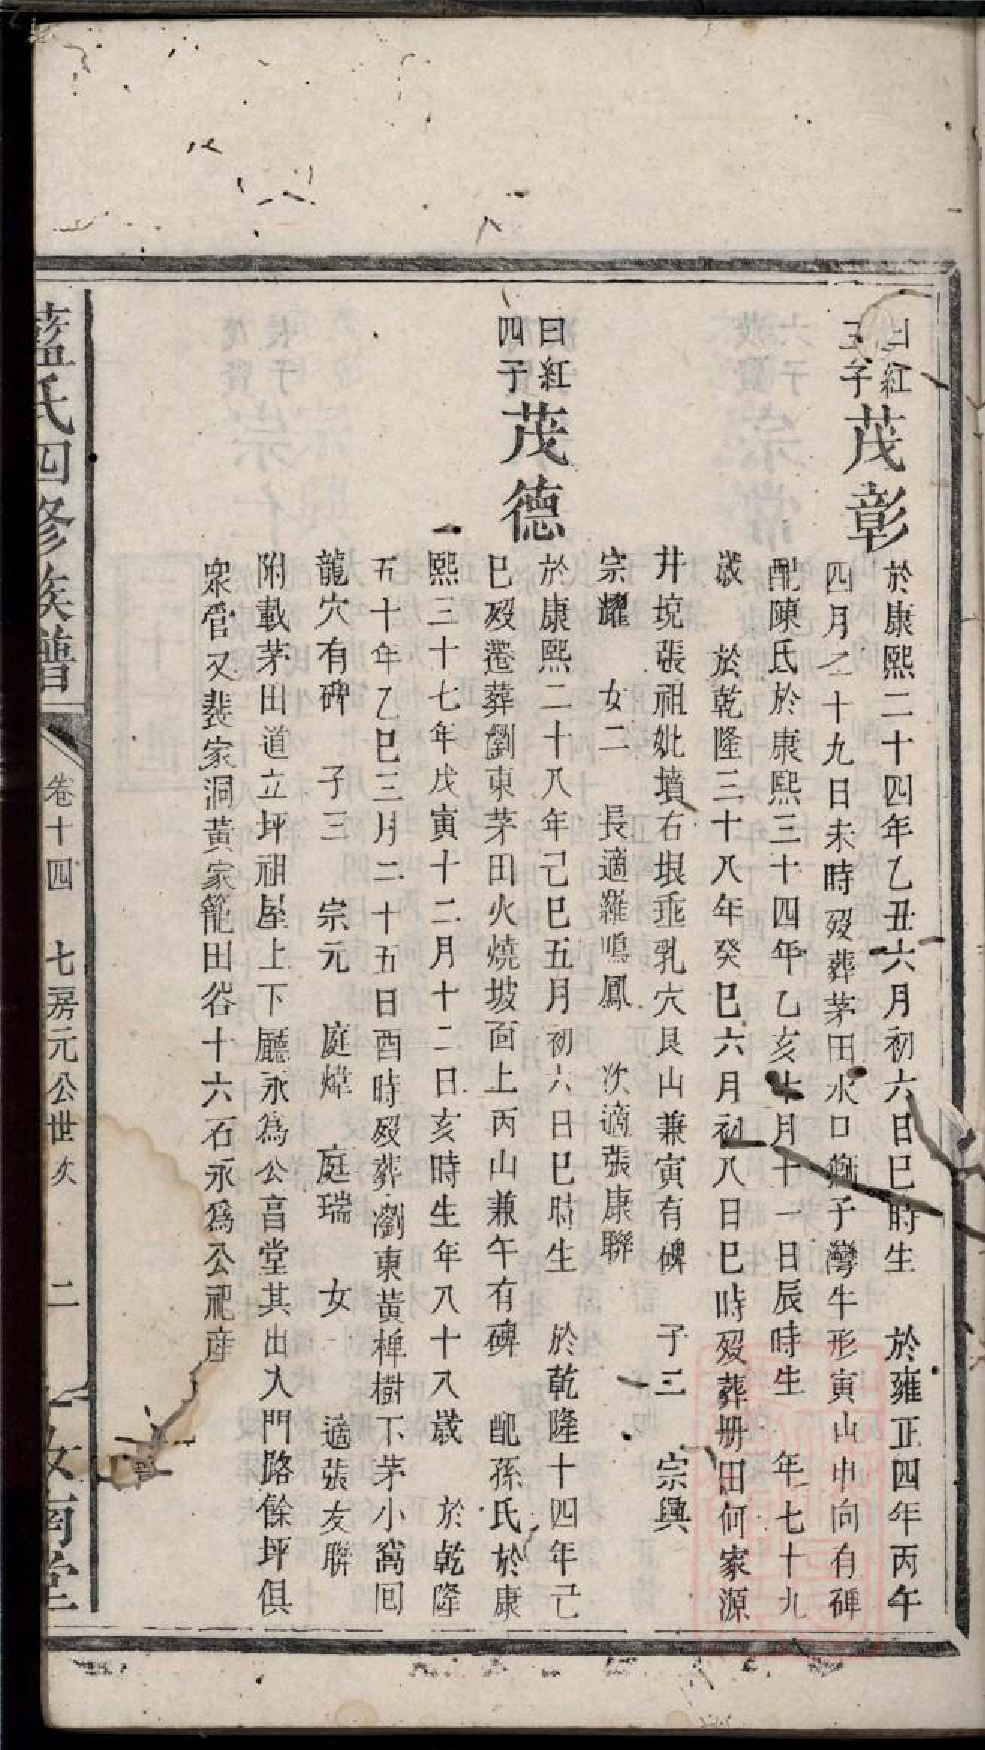 曰紅
三子
茂彰
於康熙二十四年乙丑六月初六日巳時生　於雍正四年丙午
四月二十九日未時歿葬茅田水口獅子灣牛形寅山申向有碑
配陳氏於康熙三十四年乙亥七月十一日辰時生　年七十九
歲　於乾隆三十八年癸巳六月初八日巳時歿葬册田何家源
井境張祖妣墳右垠乖乳穴艮山兼寅有碑　子三　宗興
宗耀　女二　長適羅鳴鳳　次適張康聯
曰紅
四子
茂德
於康熙二十八年己巳五月初六日巳時生　於乾隆十四年己
巳歿遷葬劉東茅田火燒坡面上丙山兼午有碑　配孫氏於康
熙三十七年戊寅十二月十二日亥時生年八十八歲　於乾隆
五十年乙巳三月二十五日酉時歿葬瀏東黃樟樹下茅小窩回
龍穴有碑　子三　宗元　庭煒　庭瑞　女一　適張友聯
附載茅田道立坪祖屋上下廳永為公享堂其出入門路餘坪俱
眾管又裴家洞黃家籠田谷十六石永為公祀產
藍氏四修族譜
卷十四　七房元公世次　二
汝南堂